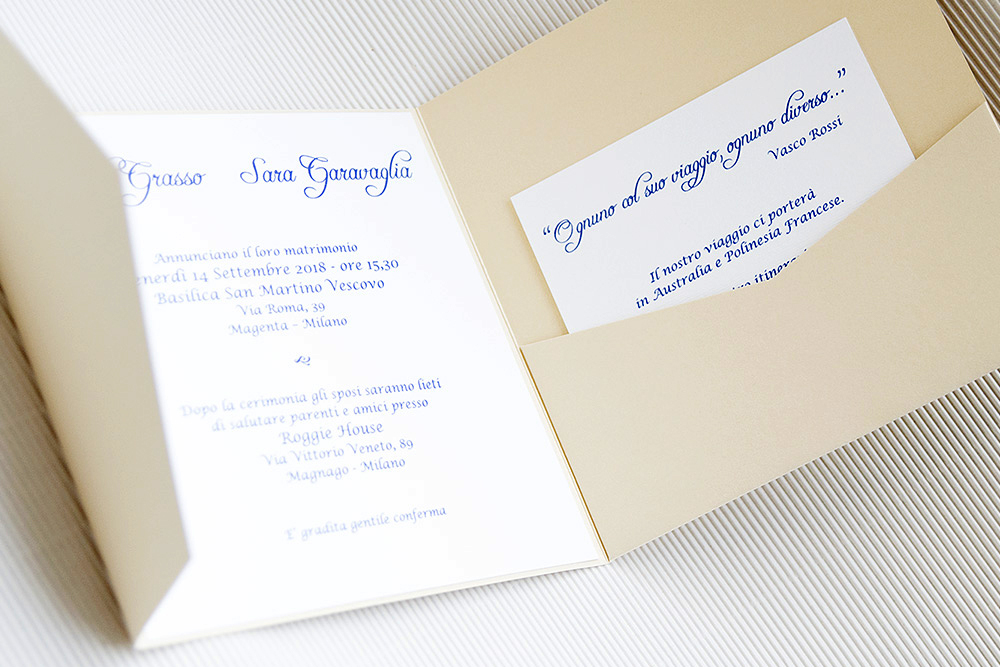 Grasso Sara Garavaglia
Annunciano il loro matrimonio
enerdì 14 Settembre 2018 - ore 15,30
Basilica San Martino Vescovo
Via Roma, 39
Magenta - Milano
Dopo la cerimonia gli sposi saranno lieti
di salutare parenti e amici presso
Roggie House
Via Vittorio Veneto, 89
Magnago - Milano
E' gradita gentile conferma
“Ognuno col suo viaggio, ognuno diverso...”
Vasco Rossi
Il nostro viaggio ci porterà
in Australia e Polinesia Francese.